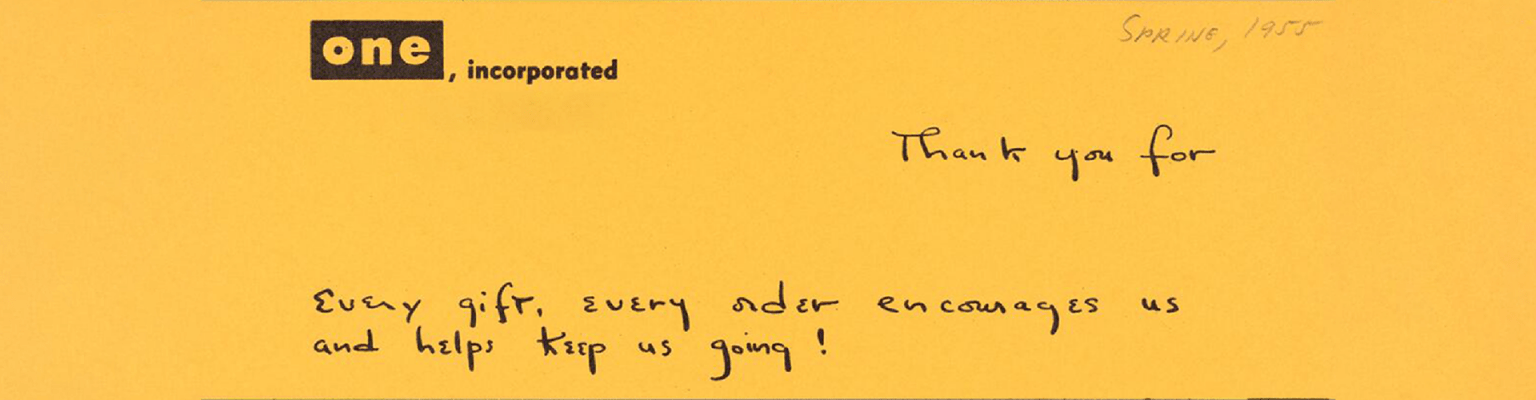 one, incorporated
Spring, 1955
Thank you for
Every gift, every order encourages us
and helps keep us going!